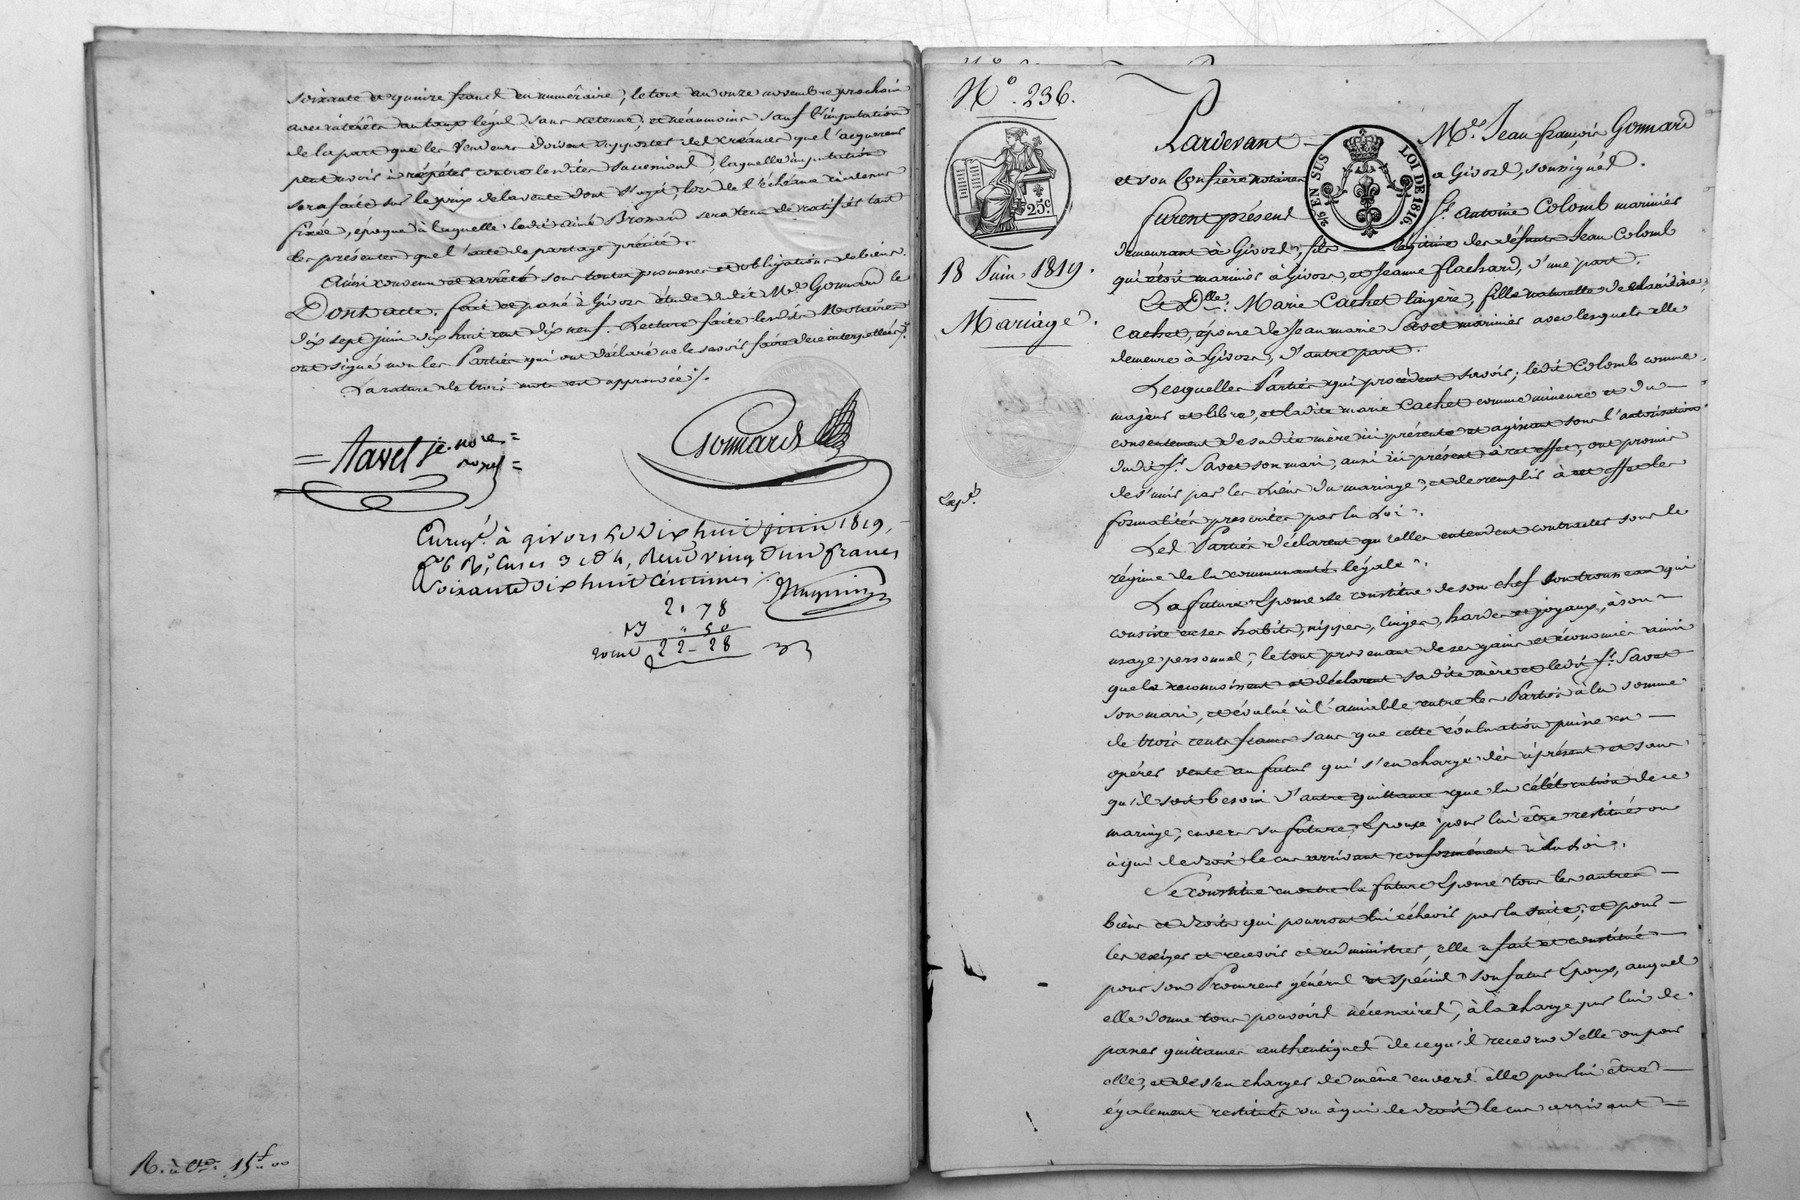 soixante et quinze francs en numéraire, le tout au onze novembre prochain
avec intérêts au taux légal sans retenue, et néanmoins sauf l'imputation
de la part que les Vendeurs doivent supporter des créances que l'acquereur
peut avoir à répéter contre les dites successions, laquelle imputation
sera faite sur le prix de la vente dont s'agit, lors de l'échéance ci-dessus
fixée, époque à laquelle ledit aîné Bronard sera tenu de ratifier tant
les présentes que l'acte de partage précité.
Ainsi convenu et arrêté sous toutes promesses et obligations de biens.
Dont acte, fait et passé à Givors étude dudit Me. Gonnard le
dix sept juin dix huit cent dix neuf. Lecture faite lesdits Notaires
ont signé non les Parties qui ont déclaré ne le savoir faire de ce interpellées./.
La rature de trois mots est approuvée./.
= Navel je. nore =
Gonnard
Enregé. à givors le dix huit juin 1819,
fo. 6 Vo, Cases 3 et 4, Reçu vingt un francs
Soixante dix huit centimes
21 78
" 50
22 - 28
R. à 15f 00
No. 236.
25c.
18 Juin 1819.
Mariage.
Exp.
Pardevant Me. Jean françois Gonnard
et son Confrère notaires à Givors, soussignés.
EN SUS LOI DE 1816
furent présens Sr. Antoine Colomb marinier
demeurant à Givors, fils légitime des défunts Jean Colomb
qui était marinier à Givors, et Jeanne flachard, d'une part.
Et Dlle. Marie Cachet lingère, fille naturelle de Claudine
Cachet, épouse de Jean marie Savet marinier avec lesquels elle
demeure à Givors, d'autre part.
Lesquelles Parties qui procèdent savoir; ledit Colomb comme
majeur et libre, et ladite marie Cachet comme mineure et du
consentement de sa dite mère ici présente et agissant sous l'autorisation
dudit Sr. Savet son mari, aussi ici présent à cet effet, ont promis
de s'unir par les liens du mariage, et de remplir à cet effet les
formalités prescrites par la Loi.
Les Parties déclarent qu'elles entendent contracter sous le
régime de la communauté légale.
La future Epouse se constitue de son chef son trousseau qui
consiste en ses habits, nippes, linges, hardes et joyaux, à son
usage personnel, le tout provenant de ses gains et économies ainsi
que le reconnoissent et déclarent sa dite mère et ledit Sr. Savet
son mari, et évalué à l'amiable entre les Parties à la somme
de trois cents francs sans que cette évaluation puisse en
opérer vente au futur qui s'en charge dès à présent et sans
qu'il soit besoin d'autre quittance que la célébration de ce
mariage, envers sa future Epouse pour lui être restitués ou
à qui de droit le cas arrivant conformément à la Loi.
Se constitue en outre la future Epouse tous les autres
biens et droits qui pourront lui échevoir par la suite, et pour
les exiger et recevoir et administrer, elle a fait et constitué
pour son Procureur général et spécial son futur Epoux, auquel
elle donne tous pouvoirs nécessaires, à la charge par lui de
passer quittances authentiques de ce qu'il recevra d'elle ou pour
elle, et de s'en charger de même envers elle pour lui être
également restitués ou à qui de droit le cas arrivant